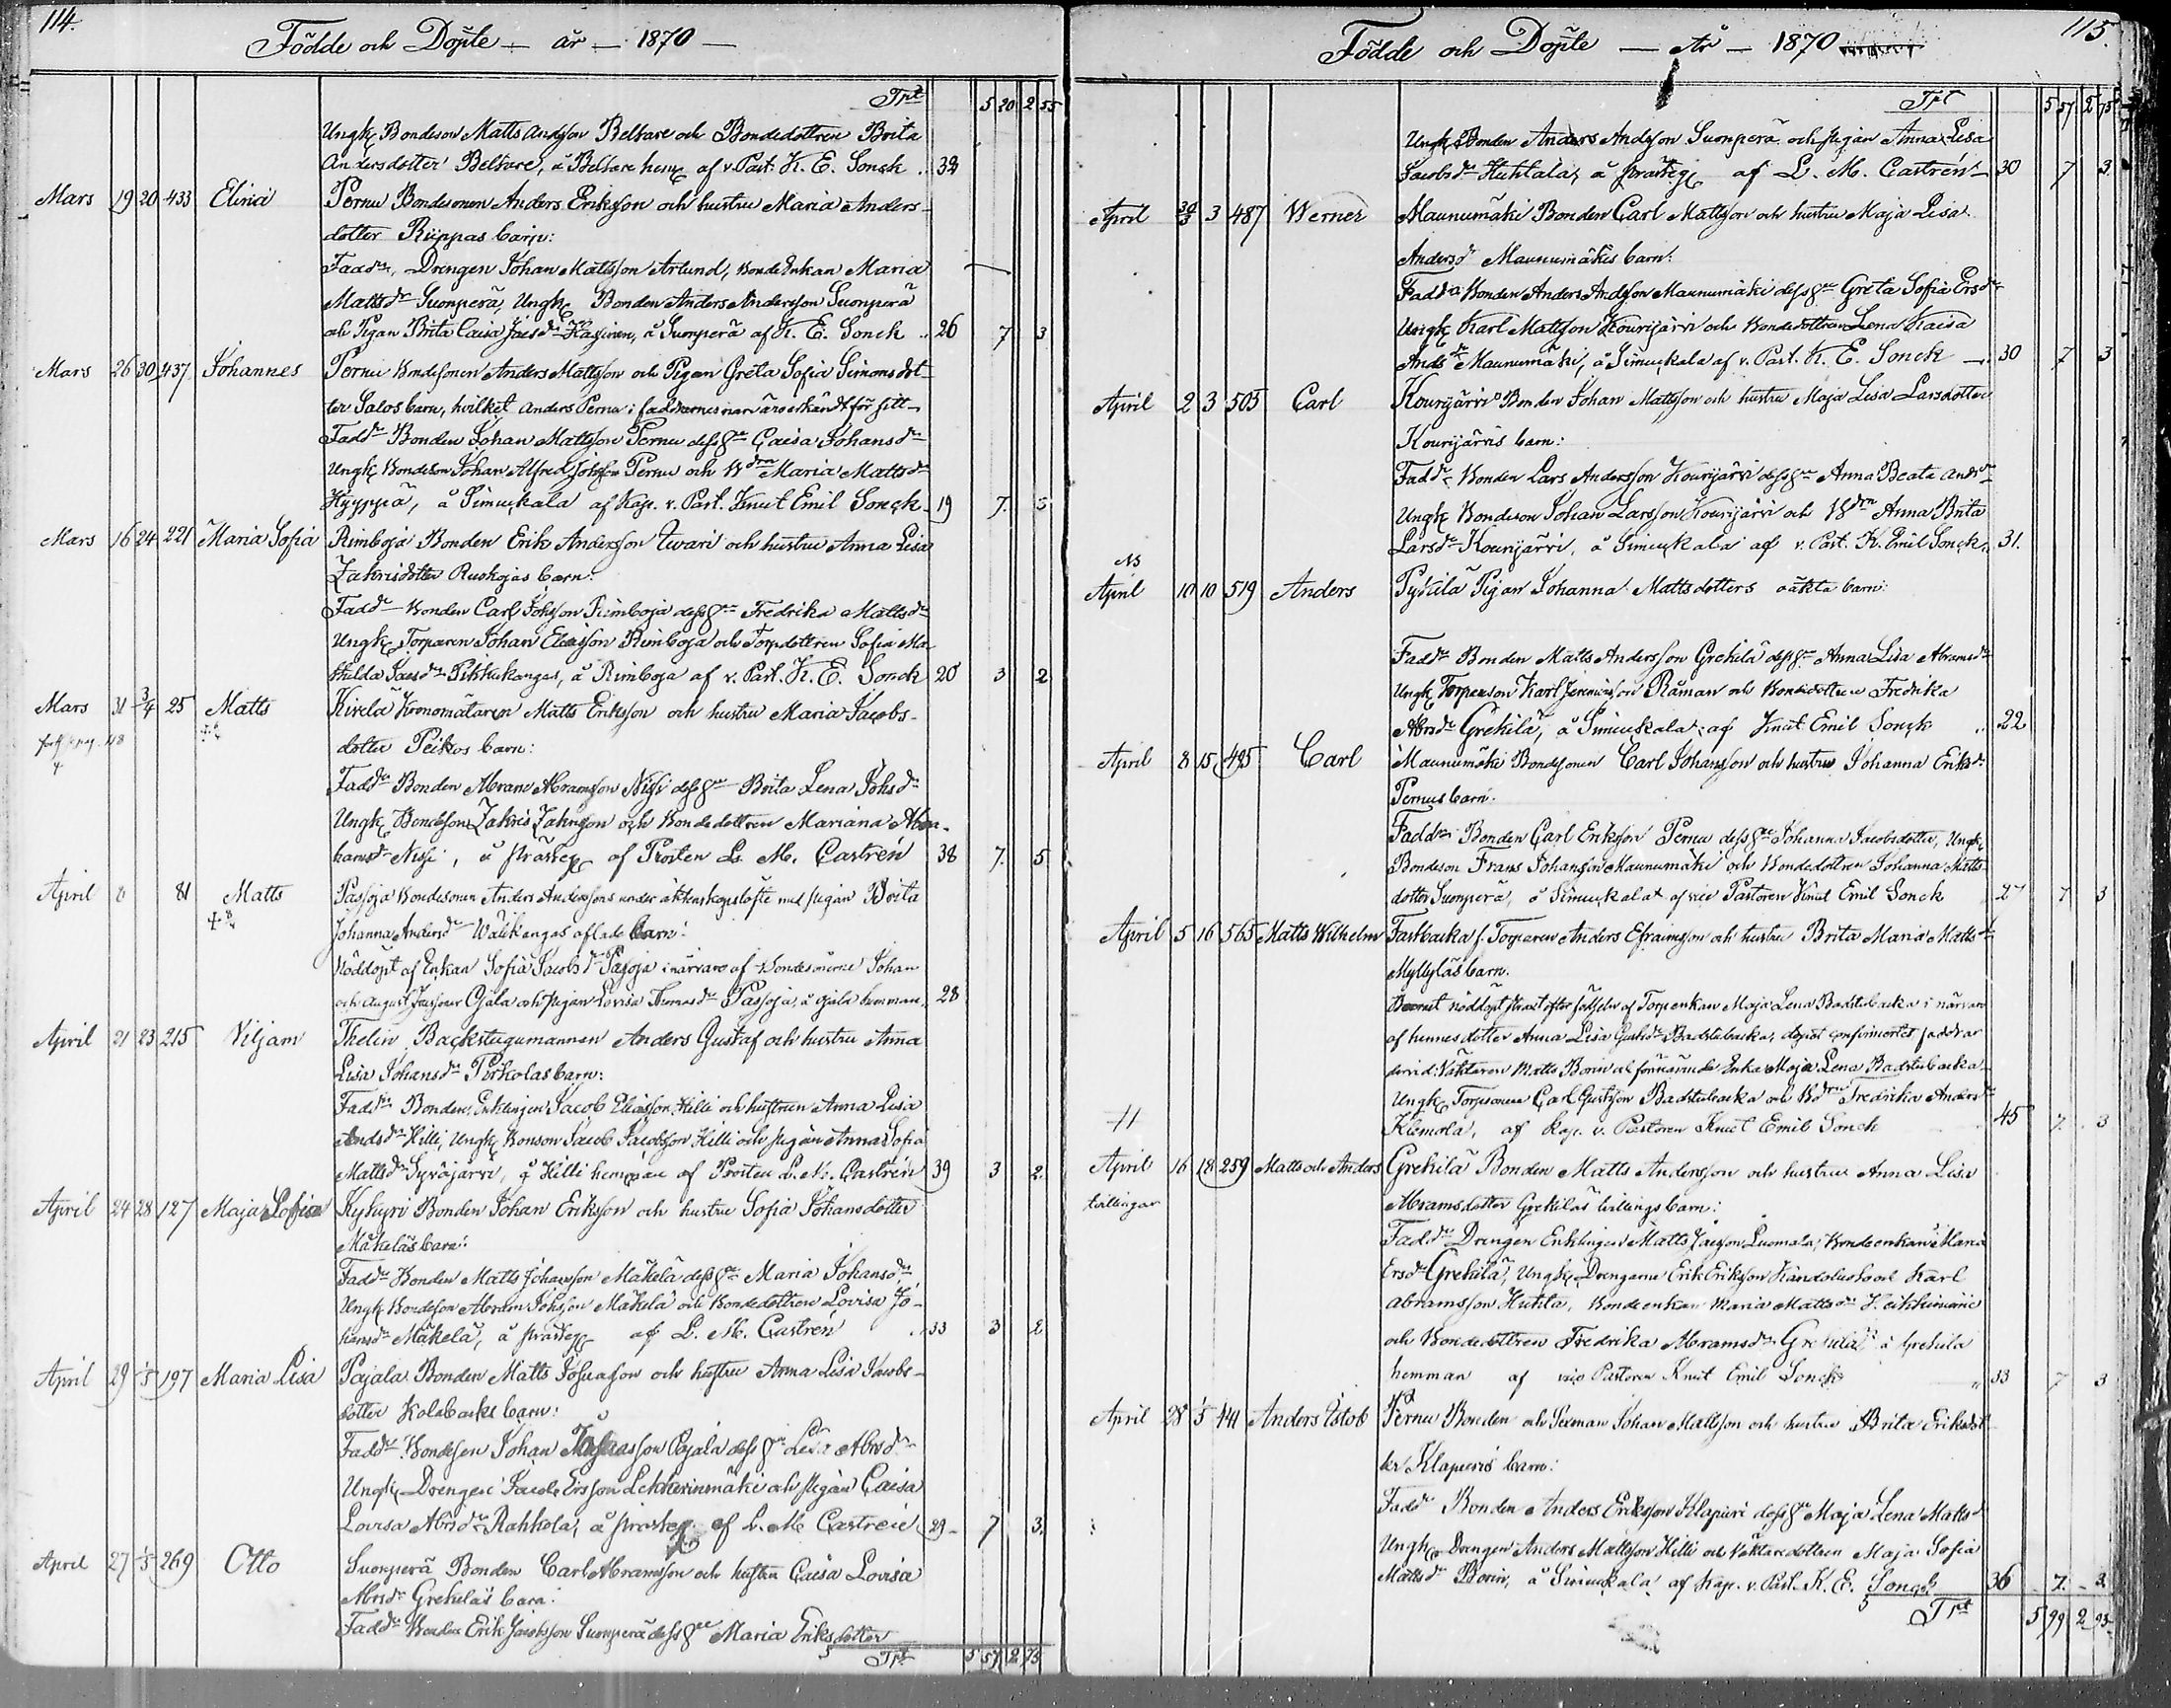 114.
Födde och Döpte — år — 1870 —
Trpt 5 20 2 55
Ungk. Bondeson Matts Andsson Belkare och Bondedottren Brita
Andersdotter Belkare, å Belkare hem. af v. Past. K. E. Sonck .. 32
Mars 19 20 433 Elina Pernu Bondesonen Anders Eriksson och hustru Maria Anders-
dotter Riippas barn:
Faddr. Drengen Johan Mattsson Arlund, Bonde Enkan Maria
Mattsdr Suonperä, Ungk. Bonden Anders Andersson Suonperä
och Pigan Brita Caisa af K. E. Sonck .. 26 7 3
Mars 26 30 437 Johannes Pernu Bondesonen Anders Mattsson och Pigan Greta Sofia Simonsdot-
ter Salos barn, hvilket Anders Pernu i faddrarnes närvaro erkändt för sitt.
Faddr Bonden Johan Mattsson Pernu dess hu Caisa Johansdr
Ungk. Bondeson Johan Alfred Johsson Pernu och Bdrn Maria Mattsdr
Hyyppä, å Simuckala af Kap. v. Past. Knut Emil Sonck. 19 7. 5
Mars 16 24 221 Maria Sofia Rimboja Bonden Erik Andersson och hustru Anna Lisa
Zakrisdotter Ruskojas barn:
Faddr Bonden Carl Johsson Rimboja dess hu Fredrika Mattsdr
Ungk. Torparen Johan Eliasson Rimboja och Torpdottren Sofia Ma-
thilda Pitkäkangas, å Rimboja af v. Past. K. E. Sonck 20 3 2
Mars 31 3/4 25 Matts Kivelä Kronomätaren Matts Eriksson och hustru Maria Jacobs-
dotter Peikos barn:
Faddr Bonden Abram Abramsson Nissi dess hu Brita Lena Johsdr
Ungk. Bondeson Zakris Zakrisson och Bondedottren Mariana Abra-
hamsdr Nissi, å prosteg. af Prosten L. M. Castrén 38 7. 5
April 8 81 Matts Passoja Bondesonen Anders Anderssons under äktenskapslöfte med pigan Brita
Johanna Andersdr Wälikangas aflade barn:
Nöddöpt af Enkan Sofia Jacobsdr Pasoja i närvaro af Bondesönerne Johan
och August Ojala och Pigan Lovisa Thomasdr Passoja, å Ojala hemman. 28
April 21 23 215 Viljam Thelin Backstugumannen Anders Gustaf och hustru Anna
Lisa Johansdr Pirkolas barn:
Faddr Bonden, Enklingen Jacob Eliasson Hilli och hustrun Anna Lisa
Andsdr Hilli, Ungk. Bonson Jacob Jacobsson Hilli och pigan Anna Sofia
Mattsdr Syväjärvi, å Hilli hemman af Prosten L. M. Castrén 39 3 2.
April 24 28 127 Maja Sofia Kyhyri Bonden Johan Eriksson och hustru Sofia Johansdotter
Mäkeläs barn:
Faddr Bonden Matts Johansson Mäkelä dess hu Maria Johansdr
Ungk. Bondeson Abram Johsson Mäkelä och Bondedottren Lovisa Jo-
hansdr Mäkelä, å prosteg. af L. M. Castrén .. 33 3 2
April 29 1/5 197 Maria Lisa Pajala Bonden Matts Josuasson och hustru Anna Lisa Jacobs-
dotter Kolabacks barn:
Faddr. Bondeson Johan Josuasson Pajala dess hu Lisa Abrsdr
Ungk. Drengen Jacob Ersson och pigan Caisa
Lovisa Abrsdr Rahkola, å prosteg. af L. M. Castrén 29 7 3.
April 27 1/5 269 Otto Suonperä Bonden Carl Abramsson och hustru Caisa Lovisa
Abrsdr Grekeläs barn:
Faddr Bonden Erik Jacobsson Suonperä dess hu Maria Eriksdotter
Trpt 5 57 2 75
115.
Födde och Döpte — År — 1870
Trpt 5 57 2 75
Ungk. Bonden Anders Andsson Suonperä och pigan Anna Lisa
Jacobsdr Huhtala, å prosteg. af L. M. Castrén 30 7 3.
April 30/3 3 487 Werner Maunumäki Bonden Carl Mattsson och hustru Maja Lisa
Andersdr Maunumäkis barn:
Faddr Bonden Anders Andsson Maunumäki dess hu Greta Sofia Ersdr
Ungk. Karl Mattsson Kourijärvi och Bondedottren Lena Kaisa
Andsdr Maunumäki, å Simuckala af v. Past. K. E. Sonck — 30 7 3
April 2 3 505 Carl Kourijärvi Bonden Johan Mattsson och hustru Maja Lisa Larsdotter
Kourijärvis barn:
Faddr Bonden Lars Andersson Kourijärvi dess hu Anna Beata Andrdr
Ungk. Bondeson Johan Larsson Kourijärvi och Bdrn Anna Brita
Larsdr Kourijärvi, å Simuckala af v. Past. K. Emil Sonck. 31.
April 10 10 519 Anders Pykilä Pigan Johanna Mattsdotters oäkta barn:
Faddr Bonden Matts Andersson Grekilä dess hu Anna Lisa Abramsdr
Ungk. Torpareson Karl Råman och Bondedottren Fredrika
Abrsdr Grekilä, å Simuckala af Knut Emil Sonck .. 22
April 8 15 495 Carl Maunumäki Bondesonen Carl Johansson och hustru Johanna Eriksdr
Pernus barn:
Faddr Bonden Carl Eriksson Pernu dess hu Johanna Jacobsdotter, Ungk.
Bondeson Frans Johansson Maunumäki och Bondedottren Johanna Matts-
dotter Suonperä, å Simuckala af vice Pastoren Knut Emil Sonck 27 7 3
April 5 16 565 Matts Wilhelm Fastbacka f. Torparen Anders Efraimsson och hustru Brita Maria Mattsdr
Myllyläs barn.
Barnet nöddöpt straxt efter födseln af Torpenkan Maja Lena Badstubacka i närvaro
af hennes dotter Anna Lisa Gustsdr Badstubacka, dopet confirmerdt faddrar
dervid: Väktaren Matts Borin och förenämnda Enka Maja Lena Badstubacka
Ungk. Torpsonen Carl Gustsson Badstubacka och Bdrn Fredrika Andersdr
Klemola, af Kap. v. Pastoren Knut Emil Sonck 45 7. 3
April 16 18 259 Matts och Anders Grekilä Bonden Matts Andersson och hustru Anna Lisa
tvillingar Abramsdotter Grekiläs tvillingsbarn:
Faddr Drengen Enklingen Matts Luomala, Bondeenkan Maria
Ersdr Grekilä, Ungk. Drengarne Erik Eriksson och Karl
Abramsson Huhta, Bondeenkan Maria Mattsdr
och Bondedottren Fredrika Abramsdr Grekilä å Grekila
hemman af vice Pastoren Knut Emil Sonck 33 7 3
April 28 1/5 441 Anders Jacob Pernu Bonden och Sexman Johan Mattsson och hustru Brita Eriksdot-
ter Klapuris barn:
Faddr Bonden Anders Eriksson Klapuri dess hu Maja Lena Mattsdr
Ungk. Drengen Anders Mattsson Hilli och Väktaredottren Maja Sofia
Mattsdr Borin, å Simuckala af Kap. v. Past. K. E. Sonck 36 7. 3
Trpt 5 99 2 93